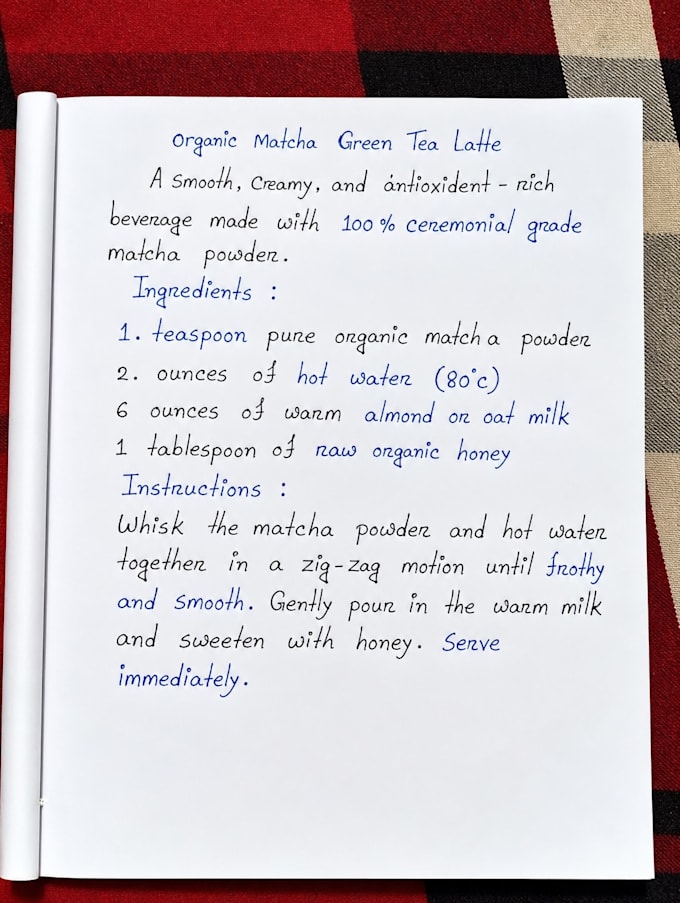 Organic Matcha Green Tea Latte
A smooth, creamy, and antioxident - rich
beverage made with 100% ceremonial grade
matcha powder.
Ingredients :
1. teaspoon pure organic matcha powder
2. ounces of hot water (80°c)
6 ounces of warm almond or oat milk
1 tablespoon of raw organic honey
Instructions :
Whisk the matcha powder and hot water
together in a zig-zag motion until frothy
and smooth. Gently pour in the warm milk
and sweeten with honey. Serve
immediately.